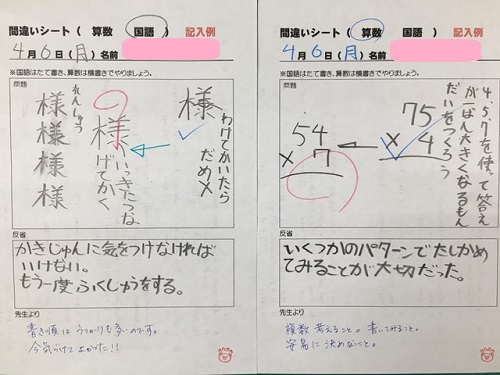 間違いシート ( 算数 国語 ) 記入例
4月6日(月) 名前
※国語はたて書き、算数は横書きでやりましょう。
問題
様
わけてかいたら
だめ×
様
いっきにつな
げてかく
れんしゅう
様
様
様
様
反省
かきじゅんに気をつけなければ
いけない。
もう一度ふくしゅうをする。
先生より
書き順はうっかりも多いのです。
今気づけてよかった!!
間違いシート ( 算数 国語 ) 記入例
4月6日(月) 名前
※国語はたて書き、算数は横書きでやりましょう。
問題
4、5、7を使って答え
が一ばん大きくなるもん
だいをつくろう
75
× 4
54
× 7
反省
いくつかのパターンでたしかめ
てみることが大切だった。
先生より
複数考えること。書いてみること。
安易に決めないこと。